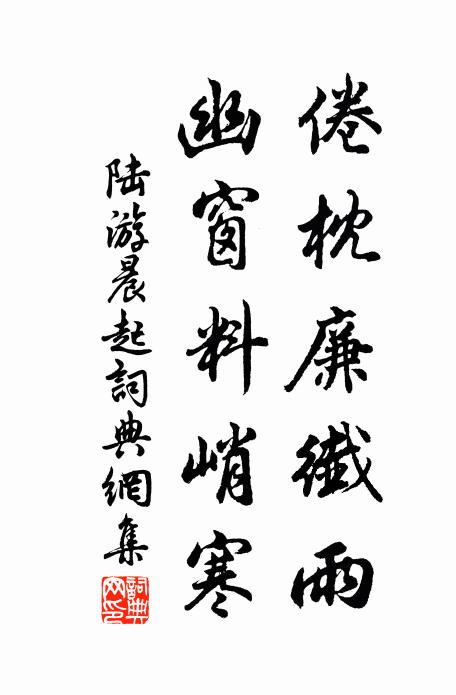 倦枕廉纖雨
幽窗料峭寒
陆游晨起詞典網集